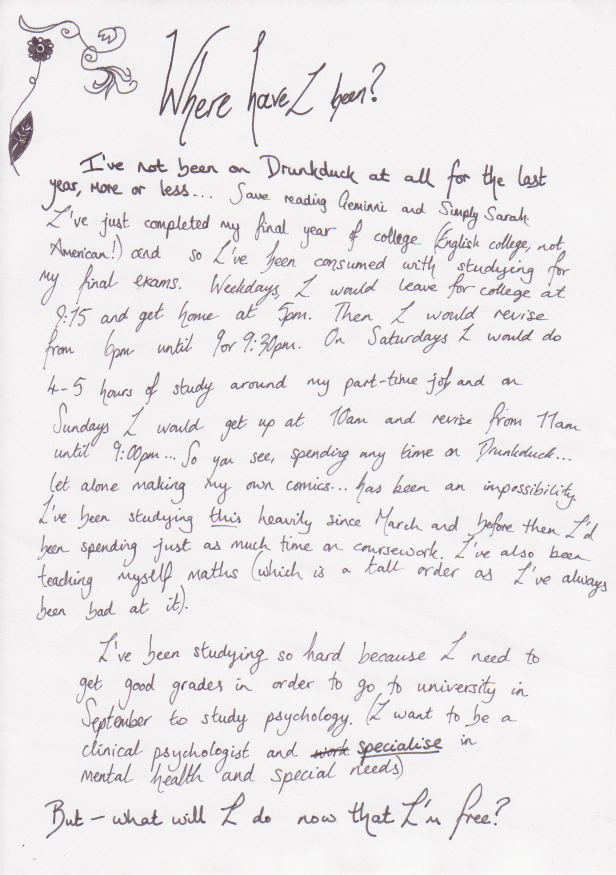 Where have I been?
I've not been on Drunkduck at all for the last
year, more or less... Save reading Geminni and Simply Sarah.
I've just completed my final year of college (English college, not
American!) and so I've been consumed with studying for
my final exams. Weekdays, I would leave for college at
9:15 and get home at 5pm. Then I would revise
from 6pm until 9 or 9:30pm. On Saturdays I would do
4-5 hours of study around my part-time job and on
Sundays I would get up at 10am and revise from 11am
until 9:00pm... So you see, spending any time on Drunkduck...
let alone making my own comics... has been an impossibility.
I've been studying this heavily since March and before then I'd
been spending just as much time on coursework. I've also been
teaching myself maths (which is a tall order as I've always
been bad at it).
I've been studying so hard because I need to
get good grades in order to go to university in
September to study psychology. (I want to be a
clinical psychologist and work specialise in
mental health and special needs)
But - what will I do now that I'm free?